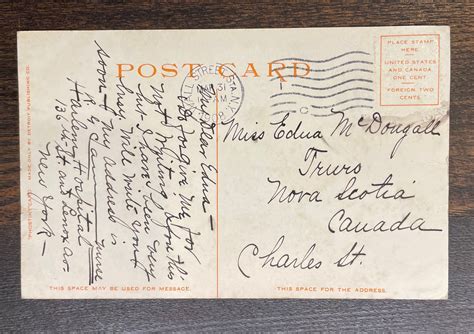 POST CARD
WALL STREET STA. N.Y.
31
AM
PLACE STAMP
HERE
UNITED STATES
AND CANADA
ONE CENT
FOREIGN TWO
CENTS
My Dear Edna –
Do forgive me for
not writing before this
but I have been very
busy. Will write you
soon. My address is
Harlem Hospital
136th St and Lenox av.
New York –
Miss Edna McDougall
Truro
Nova Scotia
Canada
Charles St.
THIS SPACE MAY BE USED FOR MESSAGE.
THIS SPACE IS FOR THE ADDRESS.
MADE ONLY BY DETROIT PUBLISHING CO.